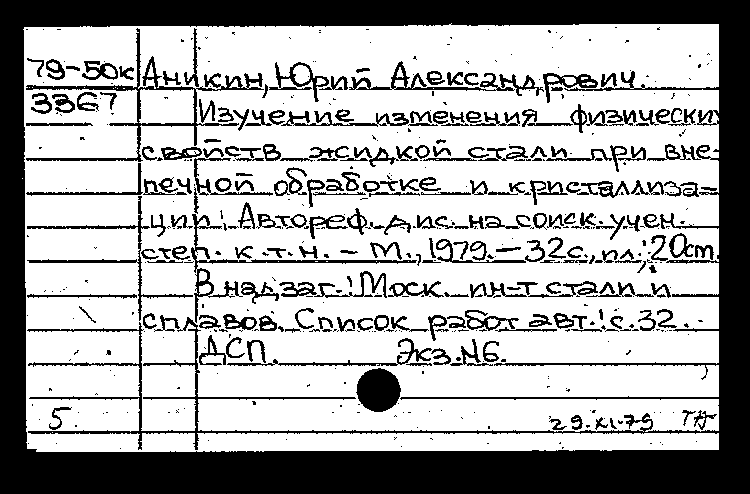 79-50к Аникин, Юрий Александрович.
3367 Изучение изменения физических
свойств жидкой стали при вне-
печной обработке и кристаллиза=
ции: Автореф. дис. на соиск. учен.
степ. к.т.н. – М., 1979. – 32с., ил.; 20см.
В надзаг.: Моск. ин-т стали и
сплавов. Список работ авт.: с.32.
ДСП. Экз.№6.
5. 29.XI.79